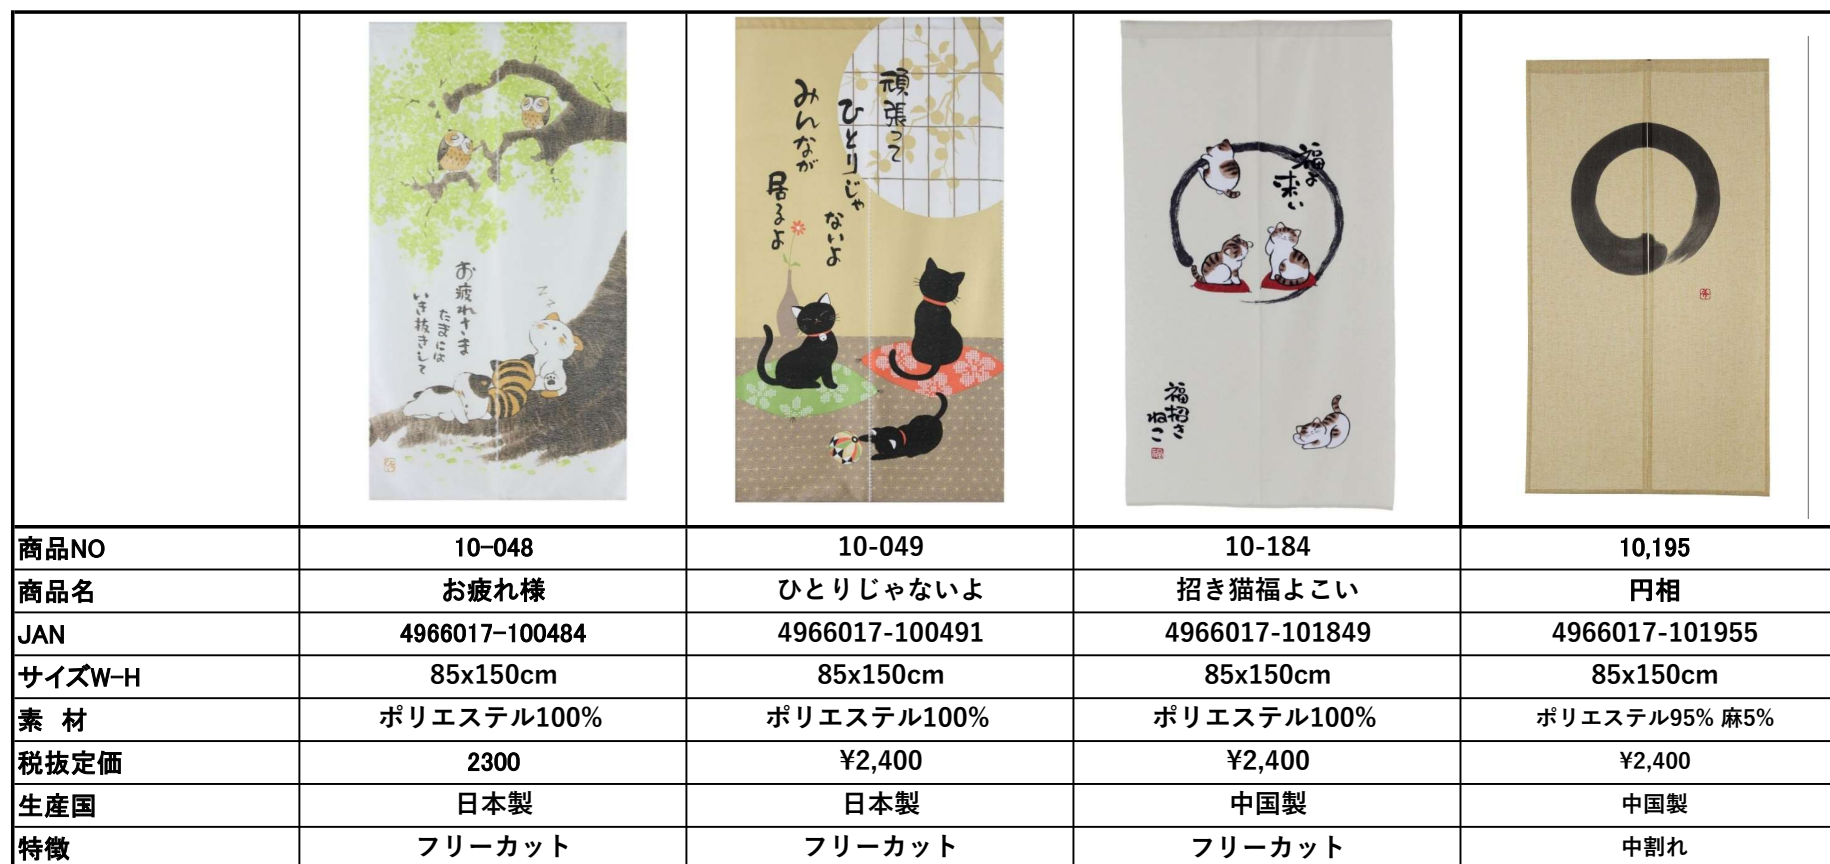 お疲れさま
たまには
いき抜きして
頑張って
ひとりじゃ
ないよ
みんなが
居るよ
福よ
来い
福招き
ねこ
商品NO 10-048 10-049 10-184 10,195
商品名 お疲れ様 ひとりじゃないよ 招き猫福よこい 円相
JAN 4966017-100484 4966017-100491 4966017-101849 4966017-101955
サイズW-H 85x150cm 85x150cm 85x150cm 85x150cm
素 材 ポリエステル100% ポリエステル100% ポリエステル100% ポリエステル95% 麻5%
税抜定価 2300 ¥2,400 ¥2,400 ¥2,400
生産国 日本製 日本製 中国製 中国製
特徴 フリーカット フリーカット フリーカット 中割れ